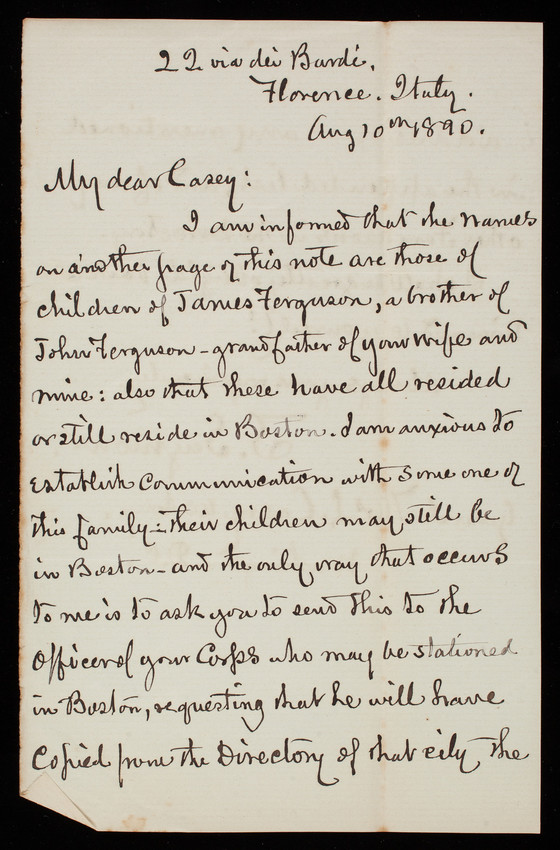 22 via dei Bardi,
Florence. Italy.
Aug 10th 1890.
My dear Casey:
I am informed that the names
on another page of this note are those of
children of James Ferguson, a brother of
John Ferguson - grandfather of your wife and
mine: also that these have all resided
or still reside in Boston. I am anxious to
establish communication with some one of
this family: their children may still be
in Boston - and the only way that occurs
to me is to ask you to send this to the
Officer of your Corps who may be stationed
in Boston, requesting that he will have
Copied from the Directory of that city the